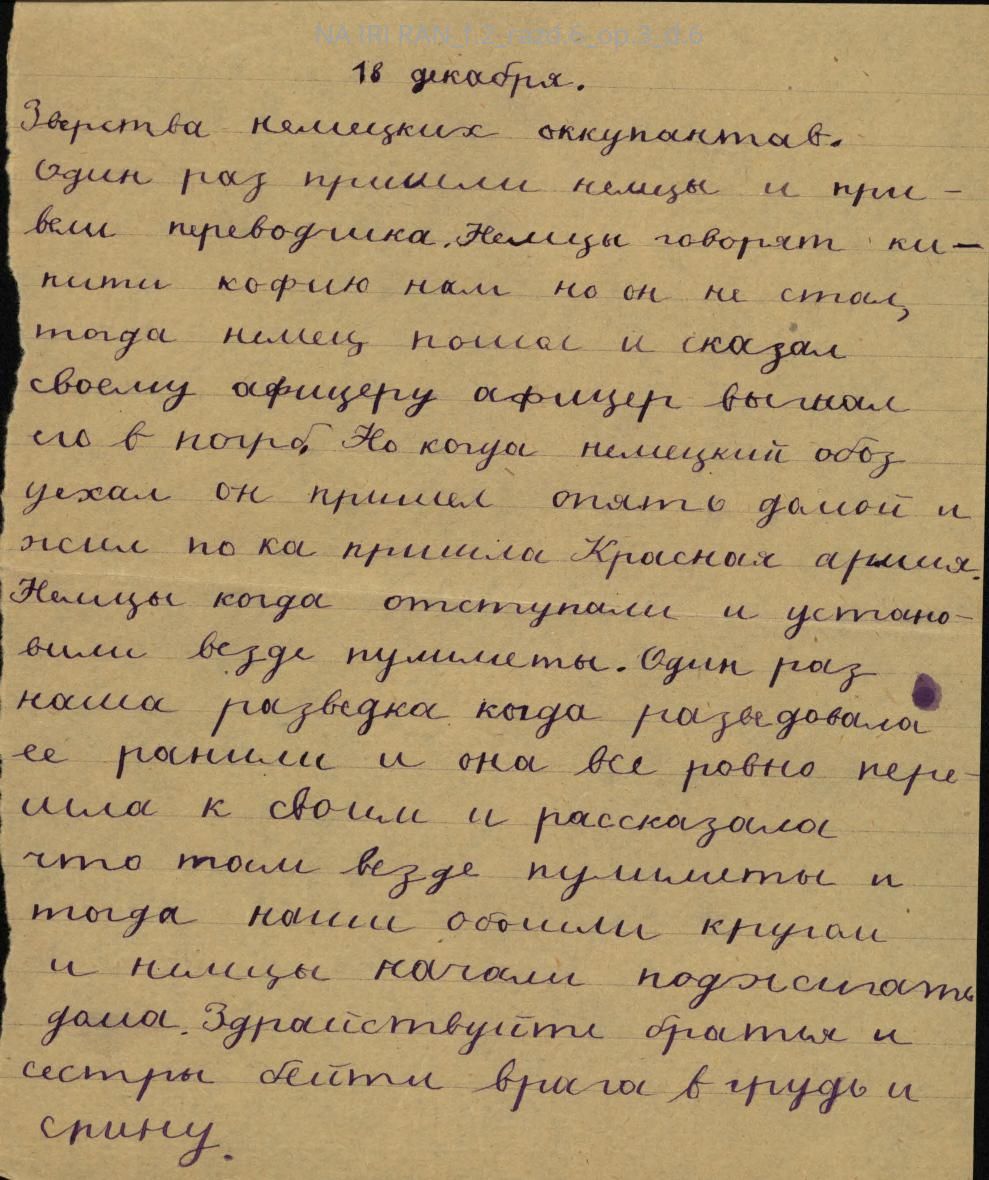 NA IRI RAN_f.2_razd.6_op.3_d.6
18 декабря.
Зверства немецких оккупантав.
Один раз пришли немцы и при-
вели переводчика. Немцы говорят ки-
пити кофию нам но он не стал,
тогда немец пошол и сказал
своему афицеру афицер выгнал
его в погрб. Но когда немецкий обоз
уехал он пришел опять домой и
жил по ка пришла Красная армия.
Немцы когда отступали и устано-
вили везде пулиметы. Один раз
наша разведка когда разведовала
ее ранили и она все ровно пере-
шла к своим и рассказала
что там везде пулиметы и
тогда наши обошли кругом
и немцы начали поджигать
дома. Здрайствуйти братья и
сестры бейти врага в грудь и
спину.